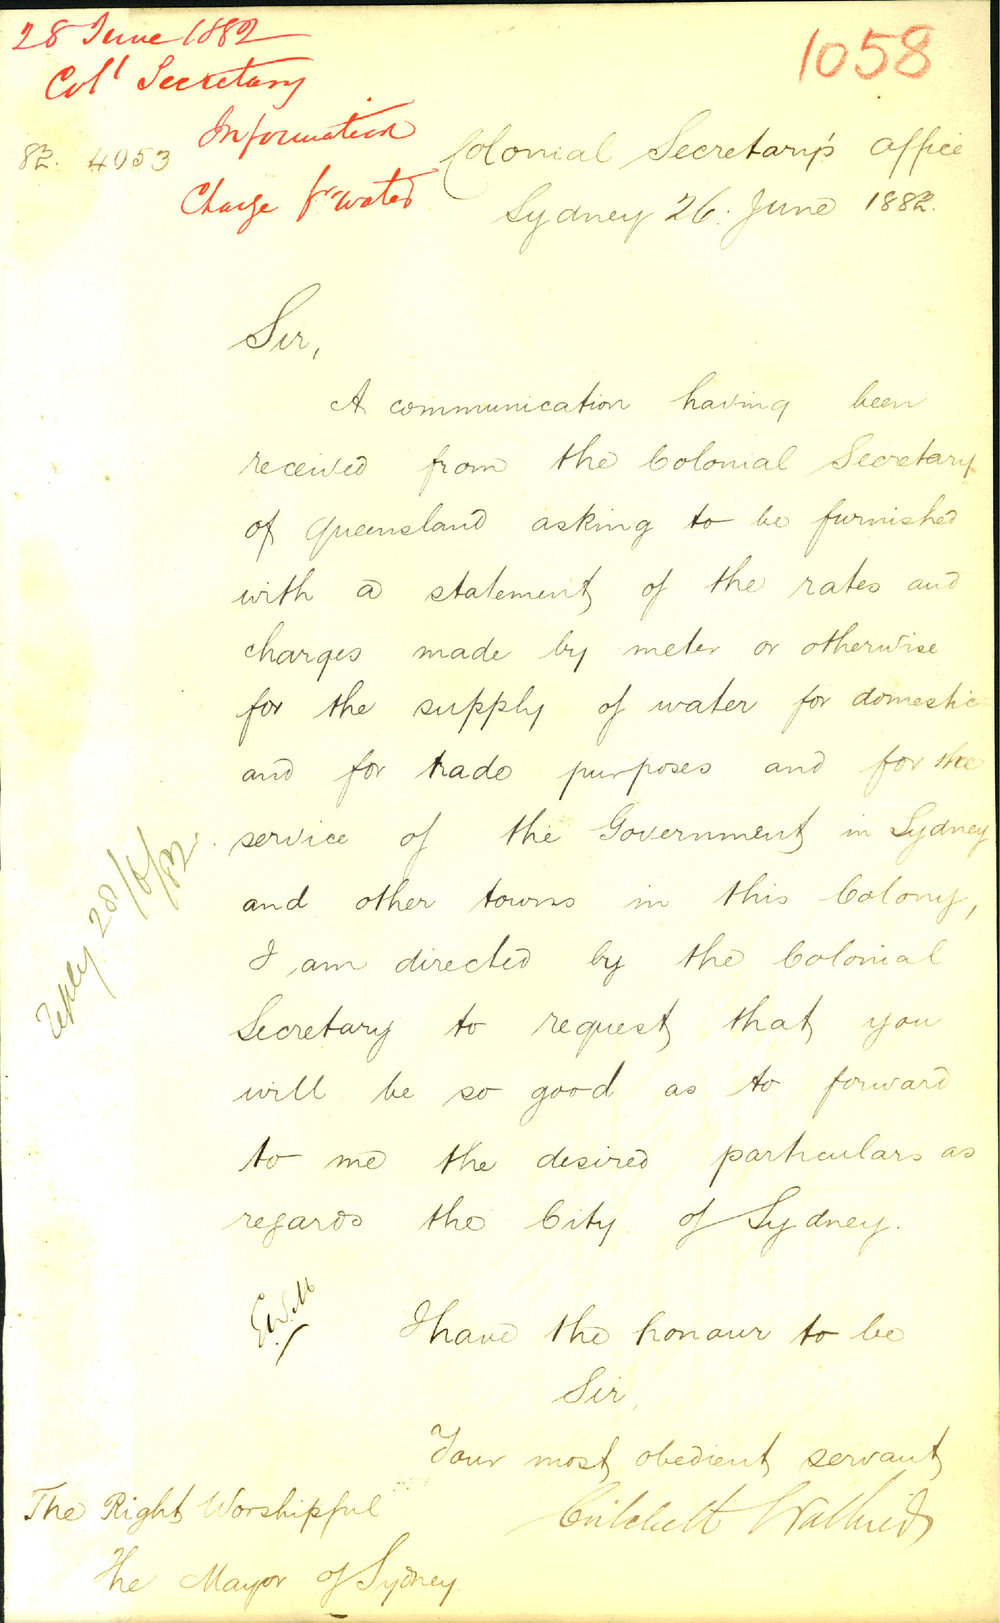 28 June 1882
Col' Secretary
Information
Charge fr water
1058
82. 4053
Colonial Secretary's Office
Sydney 26: June 1882.
Sir,
A communication having been
received from the Colonial Secretary
of Queensland asking to be furnished
with a statement of the rates and
charges made by meter or otherwise
for the supply of water for domestic
and for trade purposes and for the
service of the Government in Sydney
and other towns in this Colony,
I am directed by the Colonial
Secretary to request that you
will be so good as to forward
to me the desired particulars as
regards the City of Sydney.
Reply 28/6/82.
I have the honour to be
Sir,
Your most obedient servant
Critchett Walker
The Right Worshipful
The Mayor of Sydney